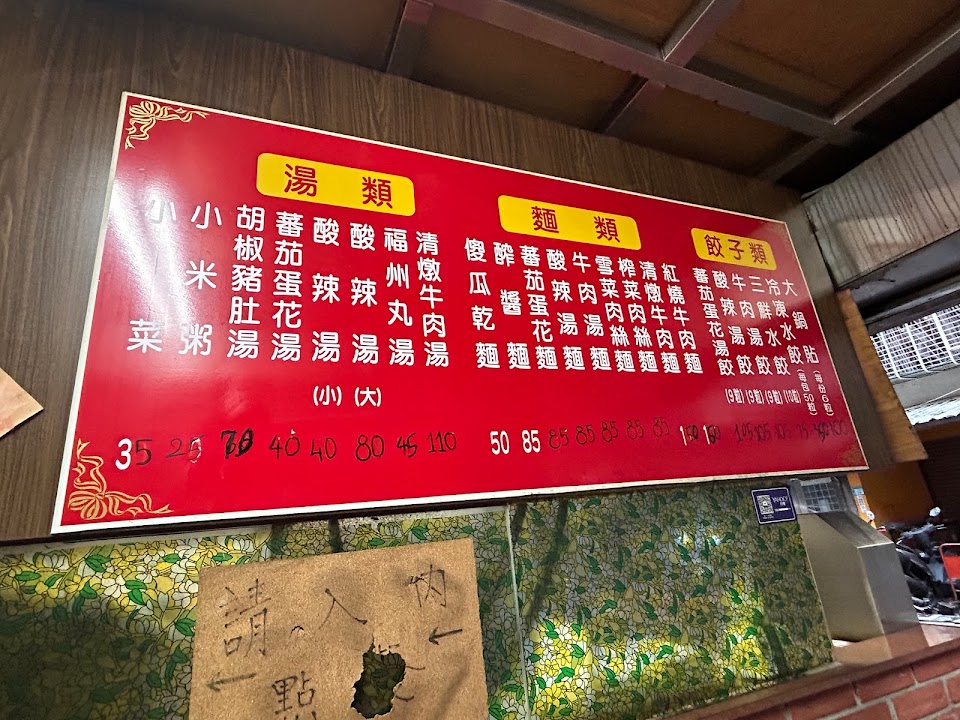 湯類
小菜
35
小米粥
25
胡椒豬肚湯
70
蕃茄蛋花湯
40
酸辣湯(小)
40
酸辣湯(大)
80
福州丸湯
45
清燉牛肉湯
110
麵類
傻瓜乾麵
50
醡醬麵
85
蕃茄蛋花麵
85
酸辣湯麵
85
牛肉湯麵
85
雪菜肉絲麵
85
榨菜肉絲麵
85
清燉牛肉麵
150
紅燒牛肉麵
餃子類
蕃茄蛋花湯餃(9粒)
105
酸辣湯餃(9粒)
105
牛肉湯餃(9粒)
三鮮水餃(10粒)
冷凍水餃(每包50粒)
大鍋貼(每份6粒)
YAHOO!
請入內
點